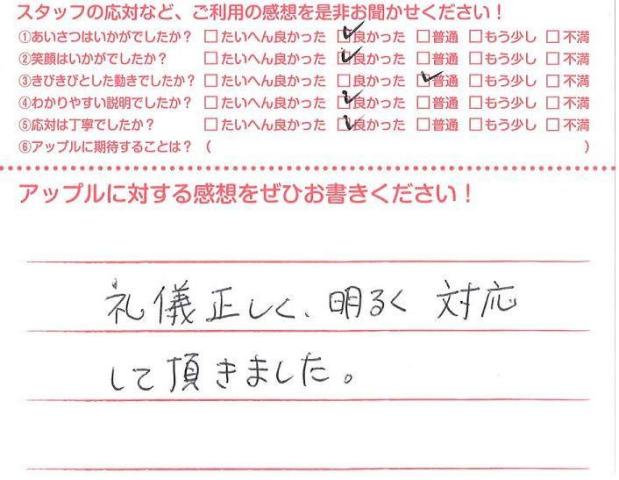 スタッフの応対など、ご利用の感想を是非お聞かせください！
①あいさつはいかがでしたか？ □たいへん良かった ☑良かった □普通 □もう少し □不満
②笑顔はいかがでしたか？ □たいへん良かった ☑良かった □普通 □もう少し □不満
③きびきびとした動きでしたか？ □たいへん良かった □良かった ☑普通 □もう少し □不満
④わかりやすい説明でしたか？ □たいへん良かった ☑良かった □普通 □もう少し □不満
⑤応対は丁寧でしたか？ □たいへん良かった ☑良かった □普通 □もう少し □不満
⑥アップルに期待することは？（ ）
アップルに対する感想をぜひお書きください！
礼儀正しく、明るく対応
して頂きました。